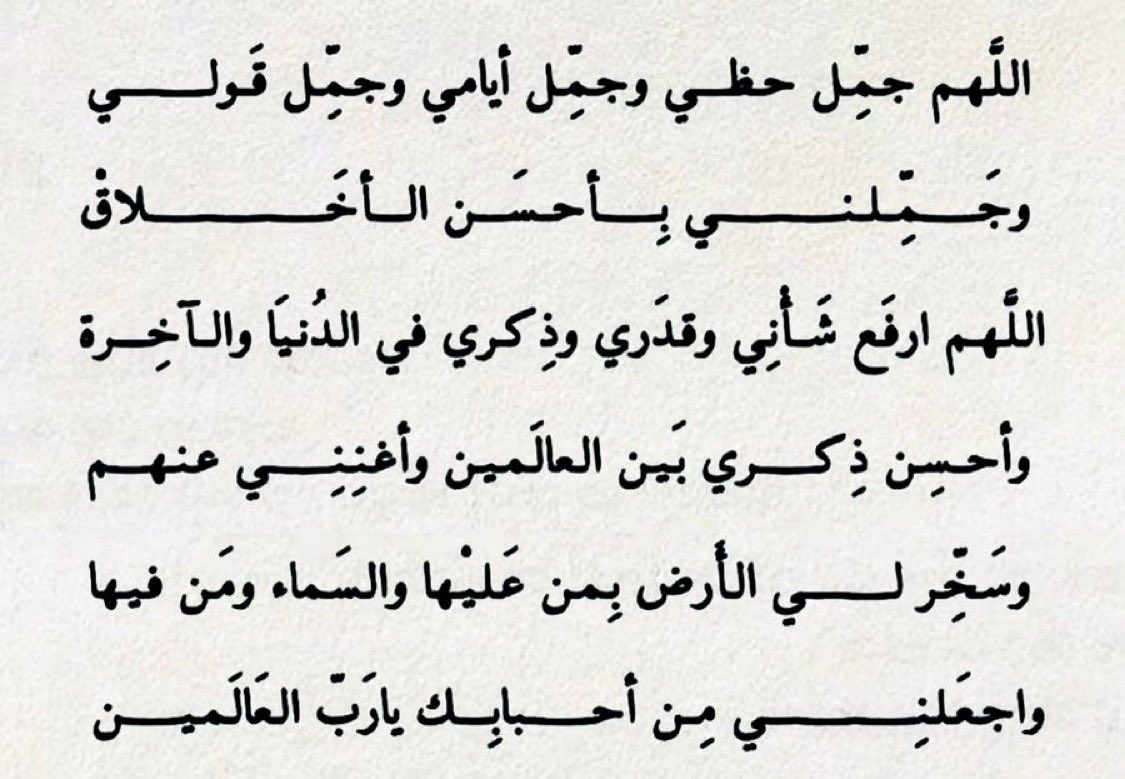 اللَّهم جمِّل حظي وجمِّل أيامي وجمِّل قَولي
وجَمِّلني بِأحسَن الأخَلاقْ
اللَّهم ارفَع شَأْنِي وقدَري وذِكري في الدُنيَا والآخِرة
وأحسِن ذِكري بَين العالَمين وأغنِنِي عنهم
وسَخِّر لي الأَرض بِمن عَليْها والسَماء ومَن فيها
واجعَلنِي مِن أحبابِك يارَبّ العَالَمين